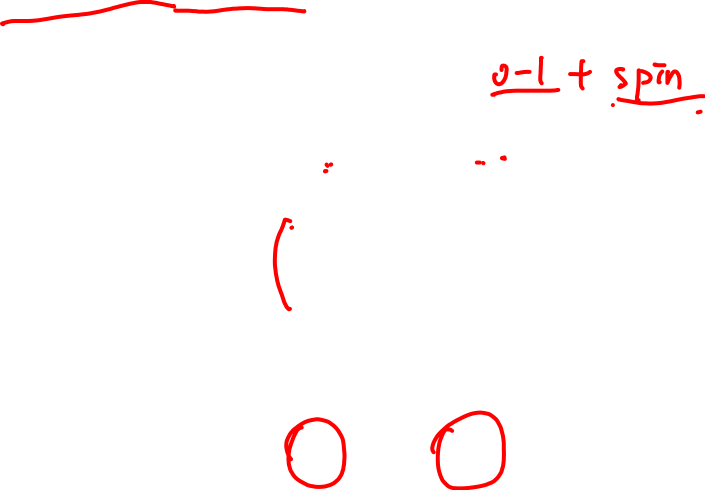 0-1 + spin